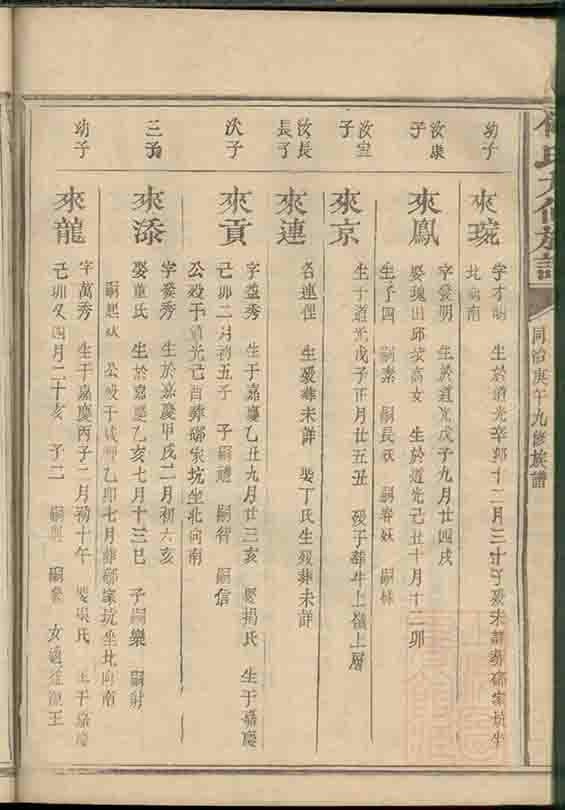 氏九修族譜
同治庚午九修族譜
幼子
來琬
字才明 生於道光辛卯十二月三十子 歿未詳葬鄒家坑坐
北向南
汝康
子
來鳳
字發明 生於道光戊子九月廿四戌
娶瑰田邱坡高女 生於道光己丑十月十二卯
生子四 嗣素 嗣長妖 嗣春妖 嗣妹
汝宜
子
來京
生于道光戊子正月廿五丑 歿子葬牛上嶺上層
汝長
長子
來連
名連俚 生歿葬未詳 娶丁氏生歿葬未詳
次子
來貢
字益秀 生于嘉慶乙丑九月廿三亥 娶楊氏 生于嘉慶
己卯二月初五子 子嗣禮 嗣智 嗣信
公歿于道光己酉葬鄒家坑坐北向南
三子
來添
字發秀 生於嘉慶甲戌二月初六亥
娶董氏 生於嘉慶乙亥七月十三巳 子嗣樂 嗣射
嗣起妖 公歿于咸豐乙卯七月葬鄒家坑坐北向南
幼子
來龍
字萬秀 生于嘉慶丙子二月初十午 娶吳氏 生于嘉慶
己卯又四月二十亥 子二 嗣興 嗣象 女適 王